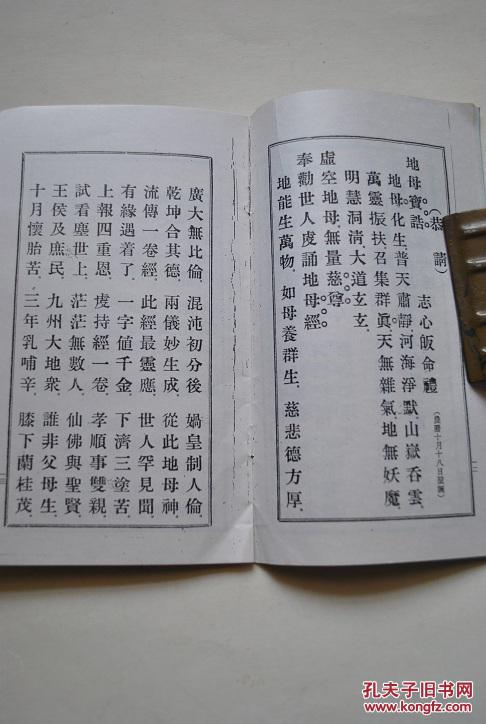 地母寶誥。(恭請) 志心皈命禮(農曆十月十八日聖誕)
地母化生普天肅靜。河海淨默。山嶽吞雲。
萬靈振扶召集群眞。天無雜氣。地無妖魔。
明慧洞淸。大道玄玄。
虛空地母。無量慈尊。
奉勸世人虔誦地母經。
地能生萬物。如母養群生。慈悲德方厚。
廣大無比倫。混沌初分後。媧皇制人倫。
乾坤合其德。兩儀妙生成。從此地母神。
流傳一卷經。此經最靈應。世人罕見聞。
有緣遇着了。一字値千金。下濟三塗苦。
上報四重恩。虔持經一卷。孝順事雙親。
試看塵世上。茫茫無數人。仙佛與聖賢。
王侯及庶民。九州大地衆。誰非父母生。
十月懷胎苦。三年乳哺辛。膝下蘭桂茂。
孔夫子旧书网
www.kongfz.com